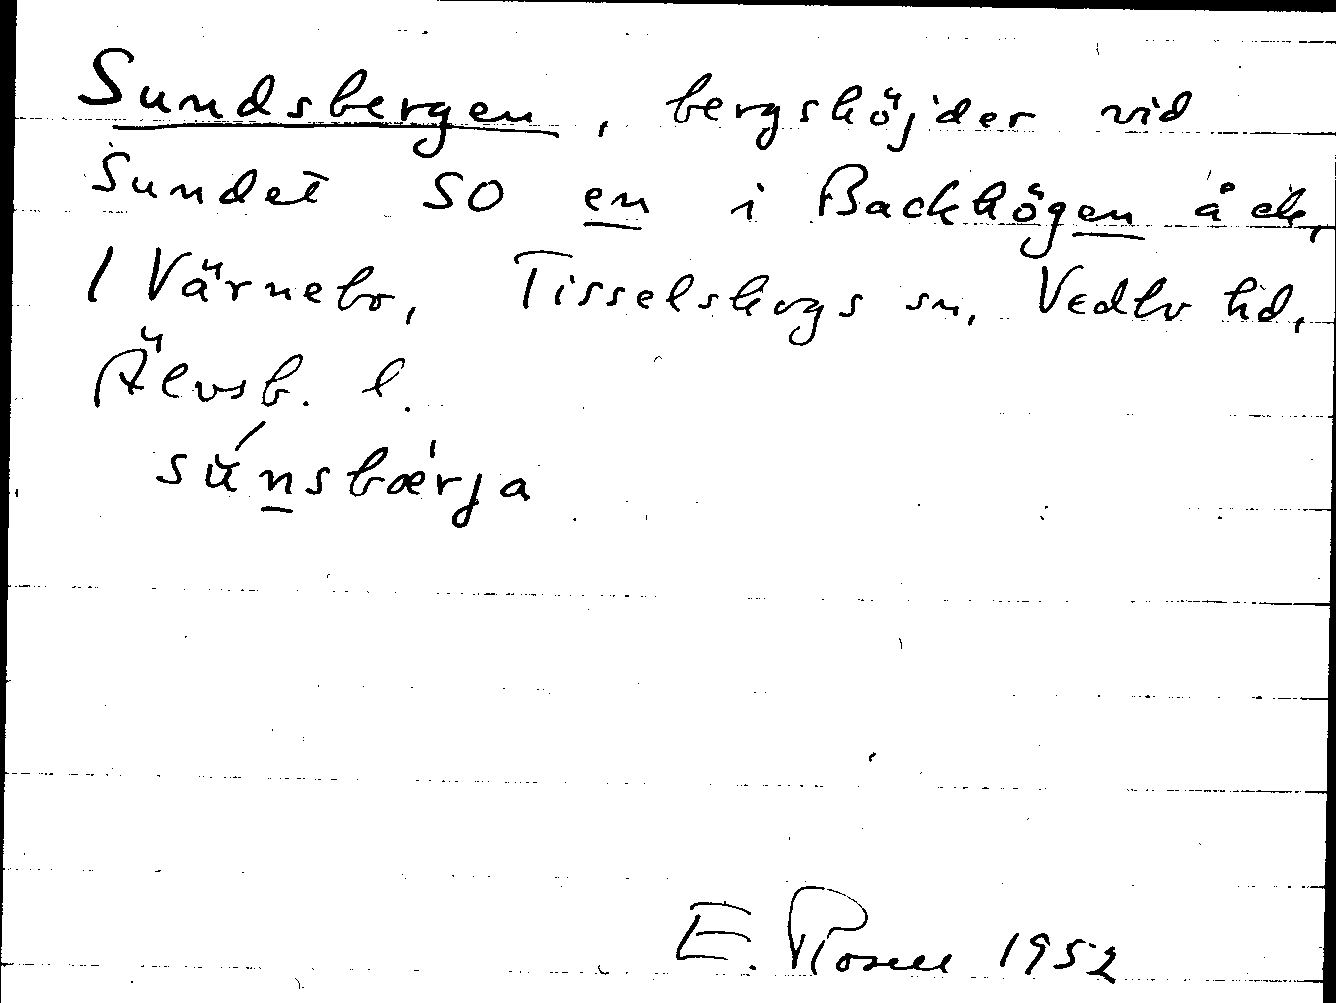 Sundsbergen, bergshöjder vid
Sundet SO en i Backhögen å ek,
1 Värnebo, Tisselskogs sn, Vedbo hd,
Älvsb. l.
súnsbærja
E. Rosell 1952